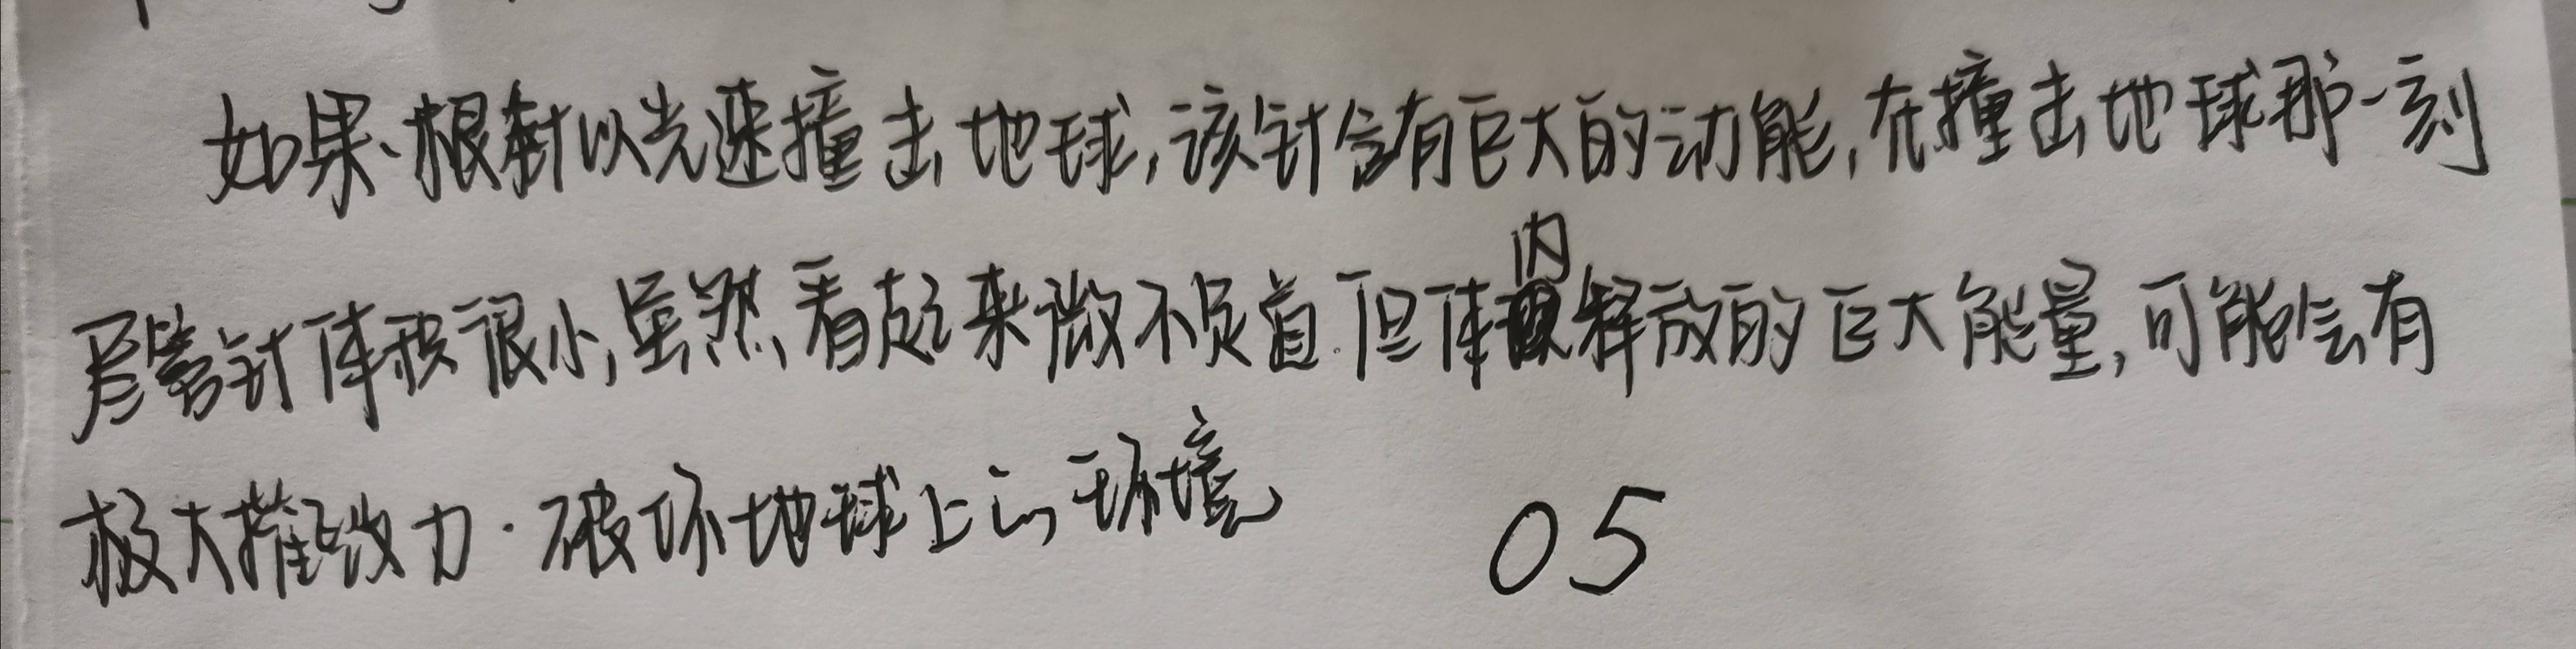 如果一根针以光速撞击地球,该针含有巨大的动能,在撞击地球那一刻
尽管针体积很小,虽然看起来微不足道.但体内释放的巨大能量,可能会有
极大摧毁力.破坏地球上的环境
05